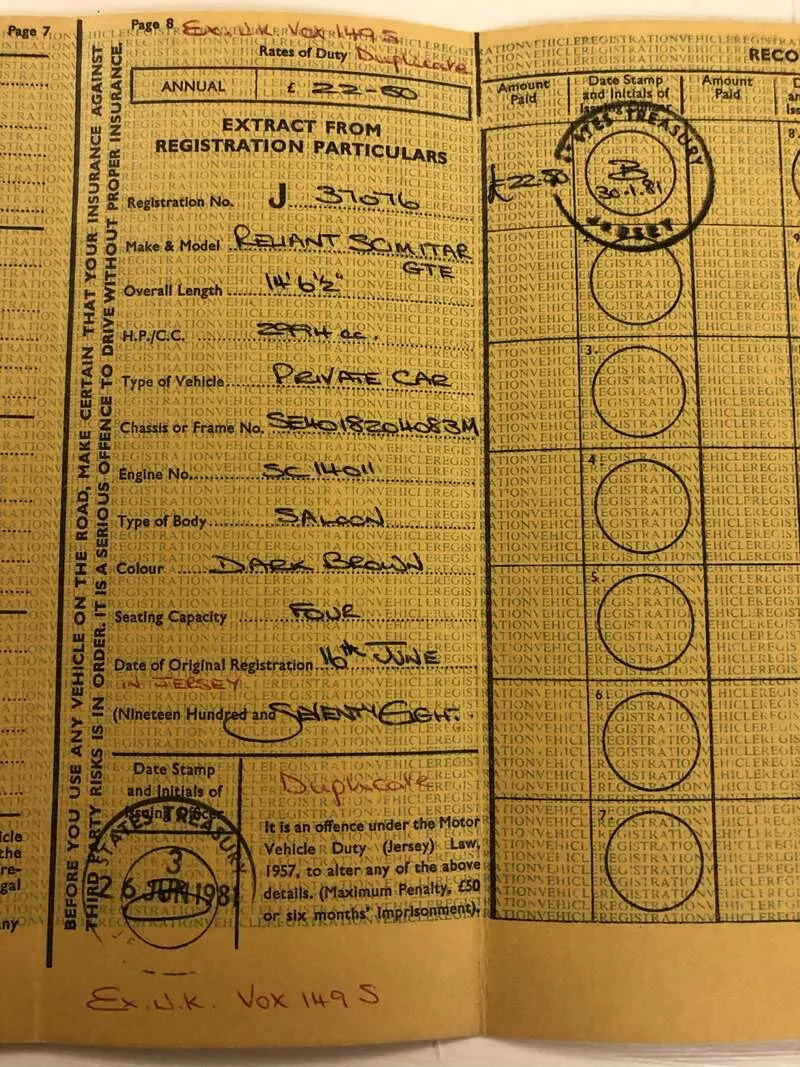 Page 7
Page 8
Ex. U.K. VOX 149 S
Duplicate
Rates of Duty
ANNUAL £ 22-50
EXTRACT FROM
REGISTRATION PARTICULARS
Registration No. J 37076
Make & Model RELIANT SCIMITAR
GTE
Overall Length 14' 6½"
H.P./C.C. 2994 cc.
Type of Vehicle PRIVATE CAR
Chassis or Frame No. SE4018204083M
Engine No. SC 14011
Type of Body SALOON
Colour DARK BROWN
Seating Capacity FOUR
Date of Original Registration 16th JUNE
IN JERSEY
(Nineteen Hundred and SEVENTY EIGHT.
Date Stamp
and Initials of
Issuing Officer
STATES TREASURY
3
26 JUN 1981
Duplicate
It is an offence under the Motor
Vehicle Duty (Jersey) Law,
1957, to alter any of the above
details. (Maximum Penalty, £50
or six months' Imprisonment).
Ex. U.K. VOX 149 S
BEFORE YOU USE ANY VEHICLE ON THE ROAD, MAKE CERTAIN THAT YOUR INSURANCE AGAINST
THIRD PARTY RISKS IS IN ORDER. IT IS A SERIOUS OFFENCE TO DRIVE WITHOUT PROPER INSURANCE.
RECO
Amount
Paid
Date Stamp
and Initials of
Issuing Officer
Amount
Paid
£22.50
STATES TREASURY
30.1.81
JERSEY
3.
4.
5.
6.
7.
8
9